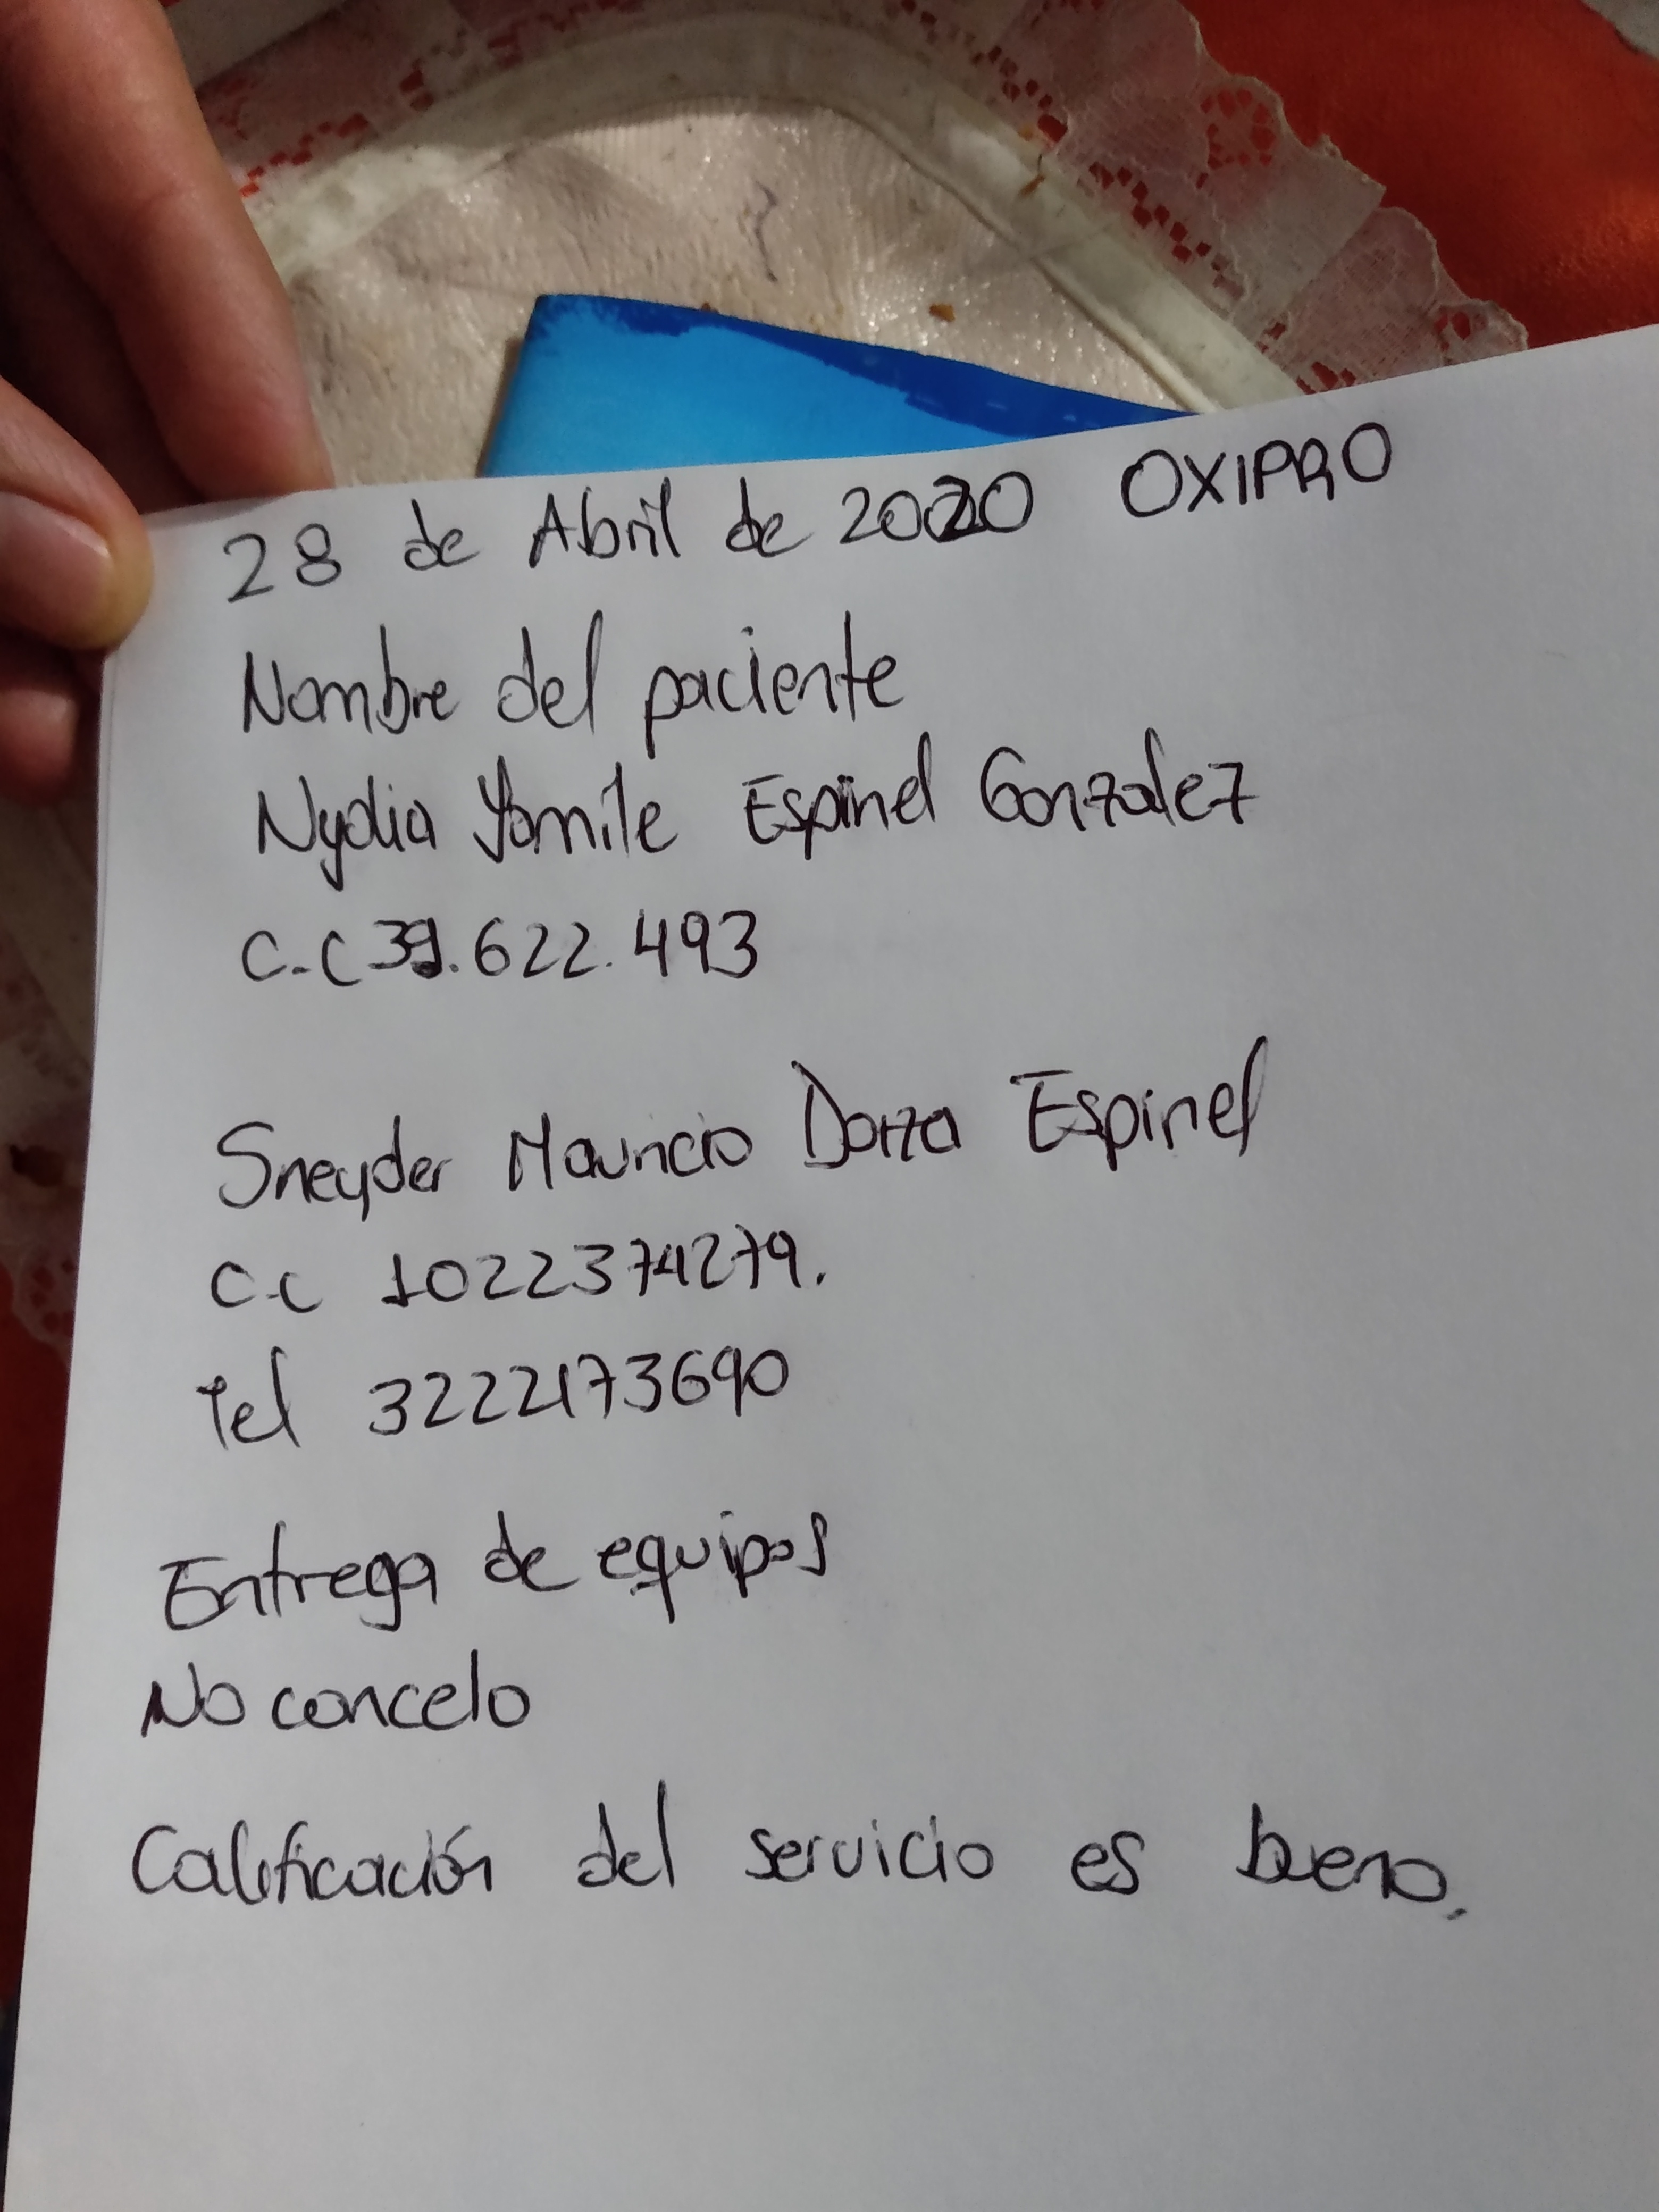 28 de Abril de 2020 OXIPRO
Nombre del paciente
Nydia Yamile Espinel Gonzalez
C.C 39.622.493
Sneyder Mauricio Daza Espinel
C.C 1022374279.
Tel 3222173690
Entrega de equipos
No cancelo
Calificación del servicio es bueno.